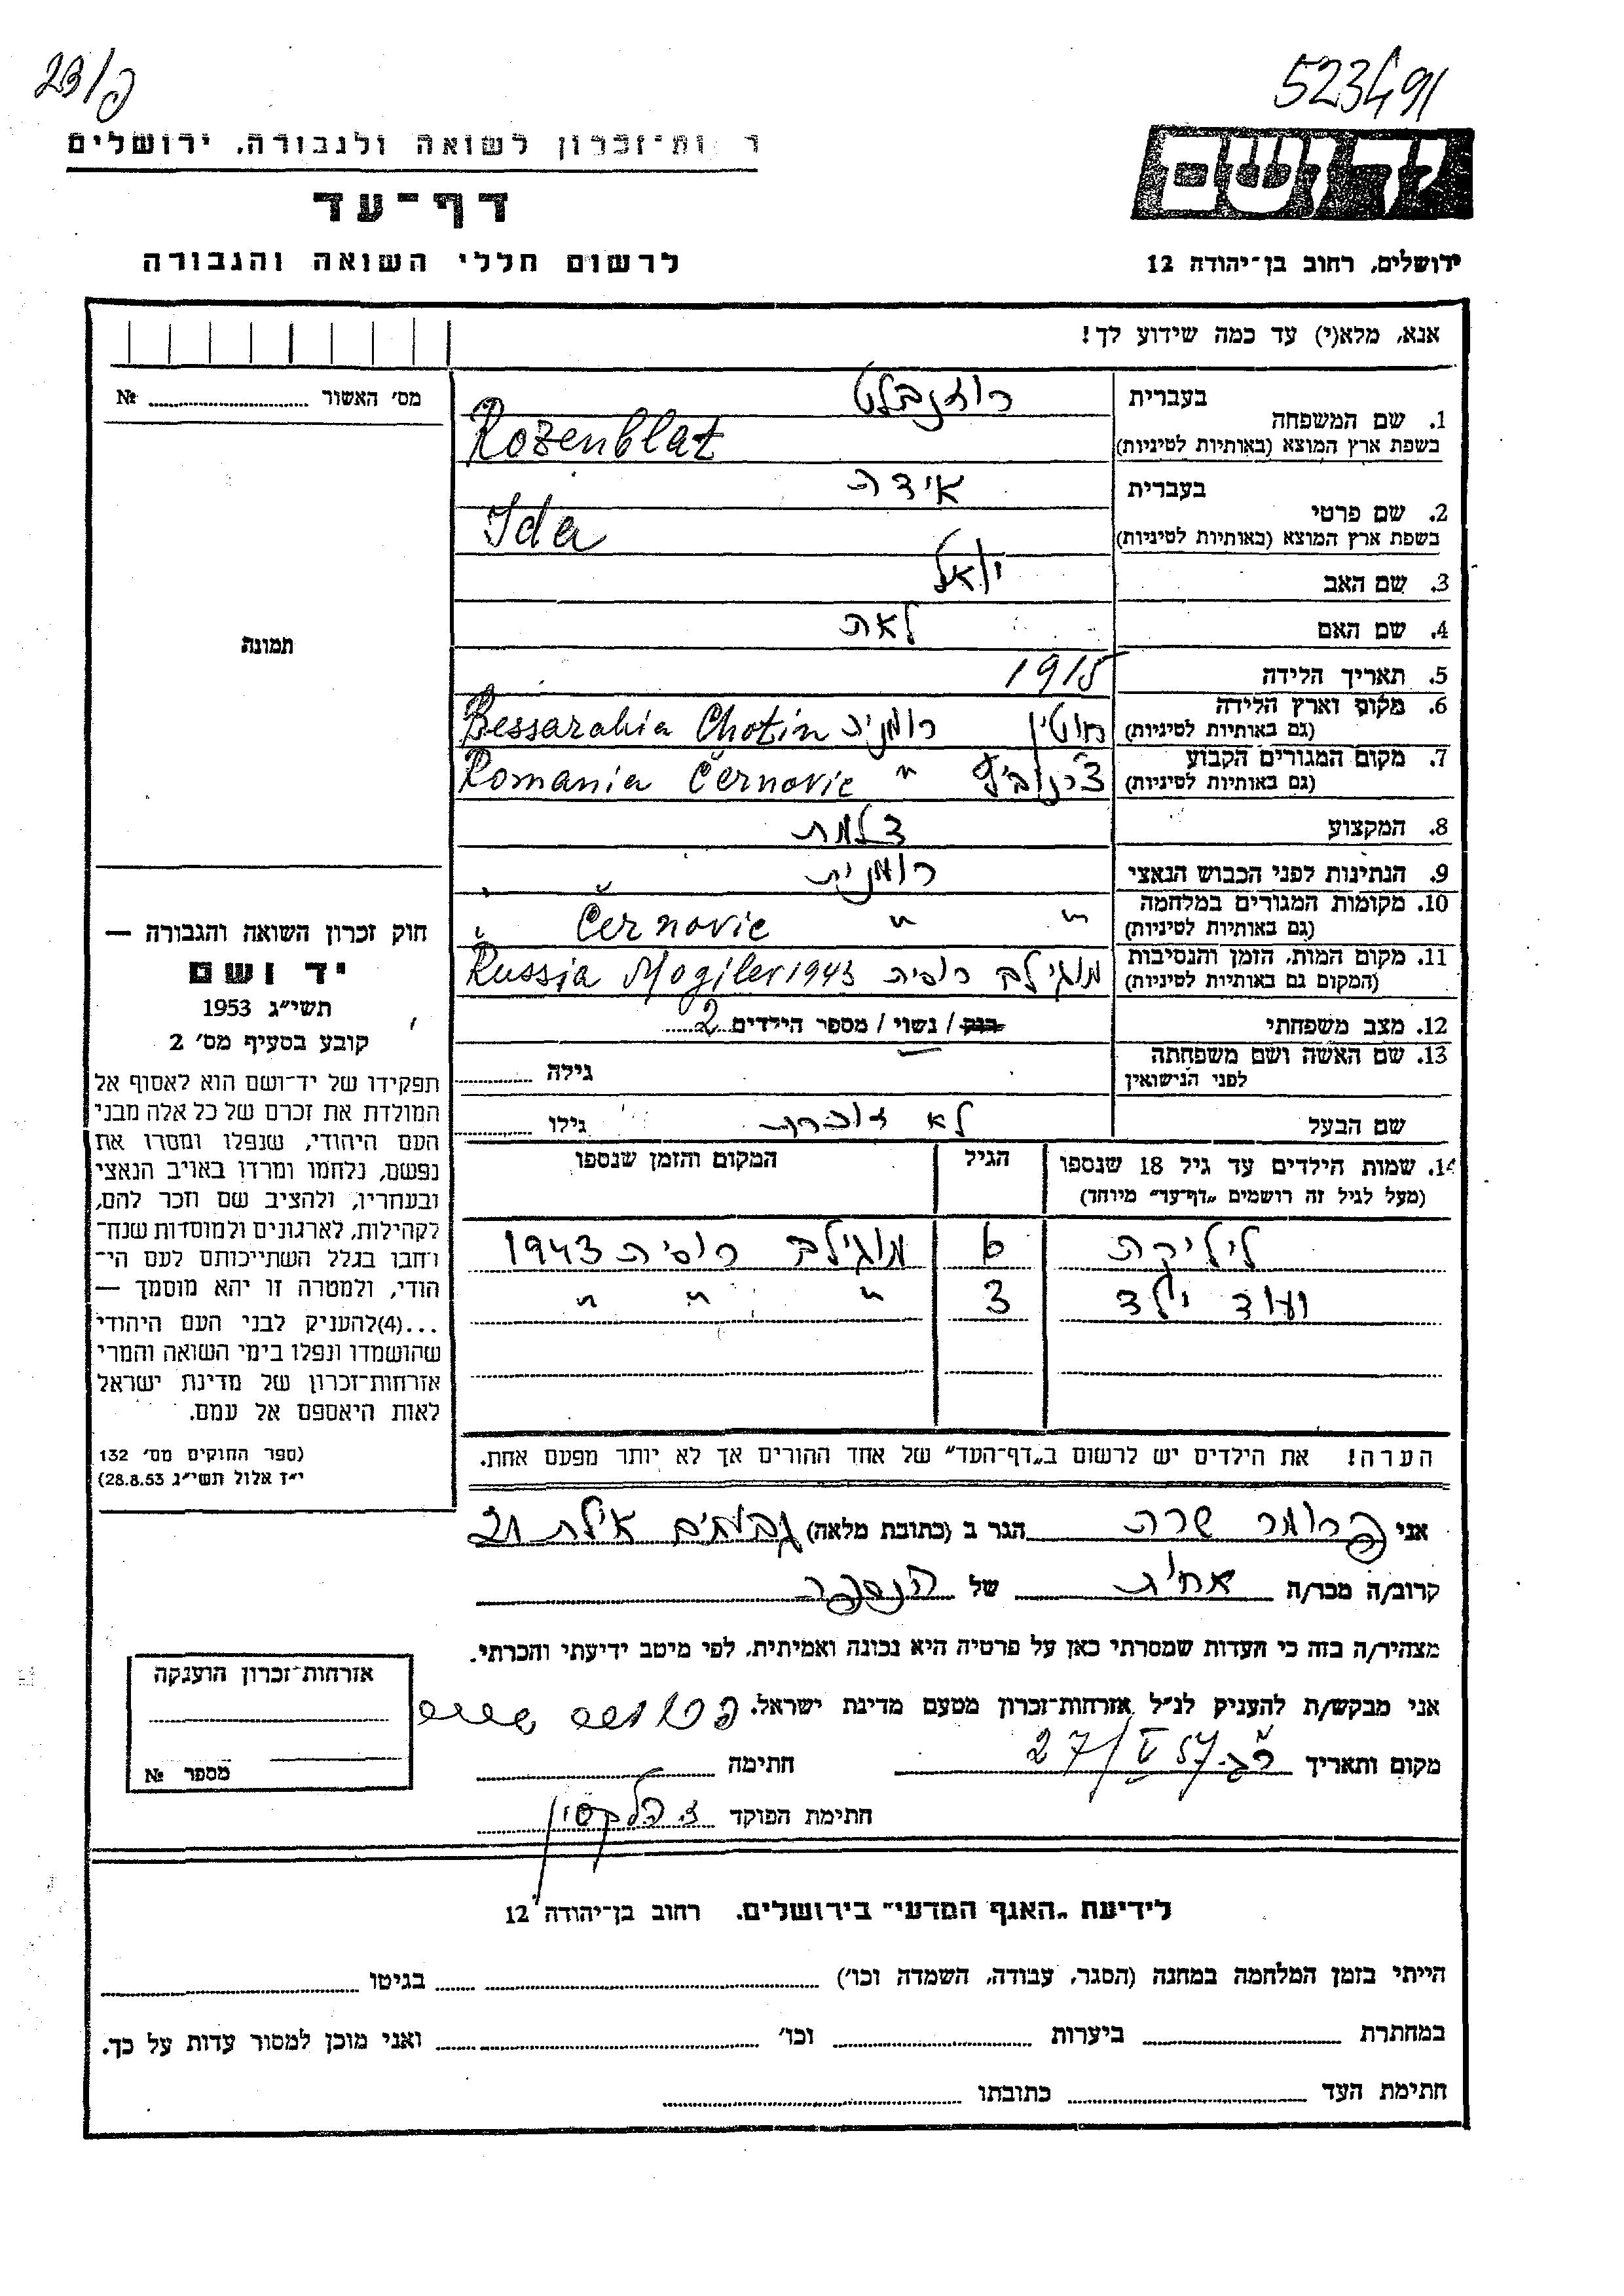 23/פ
523491
ר ות־זכרון לשואה ולגבורה. ירושלים
דף־עד
לרשום חללי השואה והגבורה
יד ושם
ירושלים, רחוב בן־יהודה 12
אנא, מלא(י) עד כמה שידוע לך!
מס׳ האשור № 
תמונה
1. שם המשפחה
בעברית רוזנבלט
בשפת ארץ המוצא (באותיות לטיניות) Rozenblat
2. שם פרטי
בעברית אידה
בשפת ארץ המוצא (באותיות לטיניות) Ida
3. שם האב יואל
4. שם האם לאה
5. תאריך הלידה 1915
6. מקום וארץ הלידה (גם באותיות לטיניות) חוטין רומניה Bessarabia Chotin
7. מקום המגורים הקבוע (גם באותיות לטיניות) צ׳רנוביץ " Romania Černovic
8. המקצוע צלמת
9. הנתינות לפני הכבוש הנאצי רומנית
10. מקומות המגורים במלחמה (גם באותיות לטיניות) " " Černovic
11. מקום המות, הזמן והנסיבות (המקום גם באותיות לטיניות) מוגילב רוסיה Russia Mogilev 1943
12. מצב משפחתי רווק / נשוי / מספר הילדים 2
13. שם האשה ושם משפחתה לפני הנישואין גילה
שם הבעל לא זוכרת גילו
14. שמות הילדים עד גיל 18 שנספו (מעל לגיל זה רושמים „דף־עד״ מיוחד) הגיל המקום והזמן שנספו
ליליקה 6 מוגילב רוסיה 1943
ועוד ילד 3 " " "
הערה! את הילדים יש לרשום ב„דף־העד״ של אחד ההורים אך לא יותר מפעם אחת.
חוק זכרון השואה והגבורה —
יד ושם
תשי״ג 1953
קובע בסעיף מס׳ 2
תפקידו של יד־ושם הוא לאסוף אל
המולדת את זכרם של כל אלה מבני
העם היהודי, שנפלו ומסרו את
נפשם, נלחמו ומרדו באויב הנאצי
ובעוזריו, ולהציב שם וזכר להם,
לקהילות, לארגונים ולמוסדות שנח־
רחבו בגלל השתייכותם לעם הי־
הודי, ולמטרה זו יהא מוסמך —
...(4)להעניק לבני העם היהודי
שהושמדו ונפלו בימי השואה והמרי
אזרחות־זכרון של מדינת ישראל
לאות היאספם אל עמם.
(ספר החוקים מס׳ 132
י״ז אלול תשי״ג 28.8.53)
אני שרה הגר ב (כתובת מלאה) גבעתיים אילת 21
קרוב/ה מכר/ה אחות של
מצהיר/ה בזה כי העדות שמסרתי כאן על פרטיה היא נכונה ואמיתית, לפי מיטב ידיעתי והכרתי.
אני מבקש/ת להעניק לנ״ל אזרחות־זכרון מטעם מדינת ישראל.
מקום ותאריך ר״ג 27/V 57 חתימה
חתימת הפוקד
אזרחות־זכרון הוענקה
מספר №
לידיעת „האגף המדעי״ בירושלים. רחוב בן־יהודה 12
הייתי בזמן המלחמה במחנה (הסגר, עבודה, השמדה וכו׳) בגיטו
במחתרת ביערות וכו׳ ואני מוכן למסור עדות על כך.
חתימת העד כתובתו